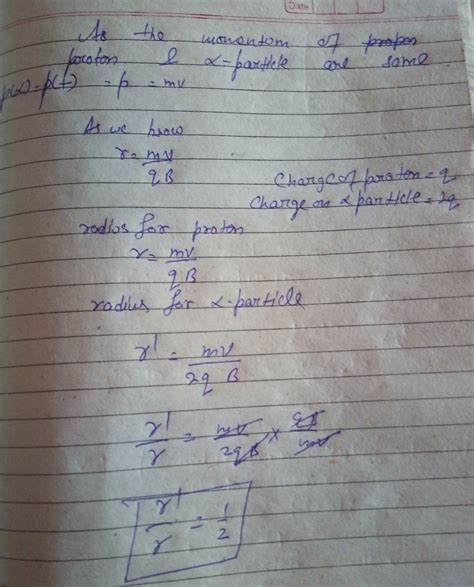 Date
As the momentom of propon
proton & α-particle are some
p(α)=p(t) = p = mv
As we know
r = mv / qB
Charge of proton = q
Charge on α particle = 2q
radius for proton
r = mv / qB
radius for α-particle
r' = mv / 2q B
r'/r = mv / 2qB × qB / mv
r'/r = 1/2